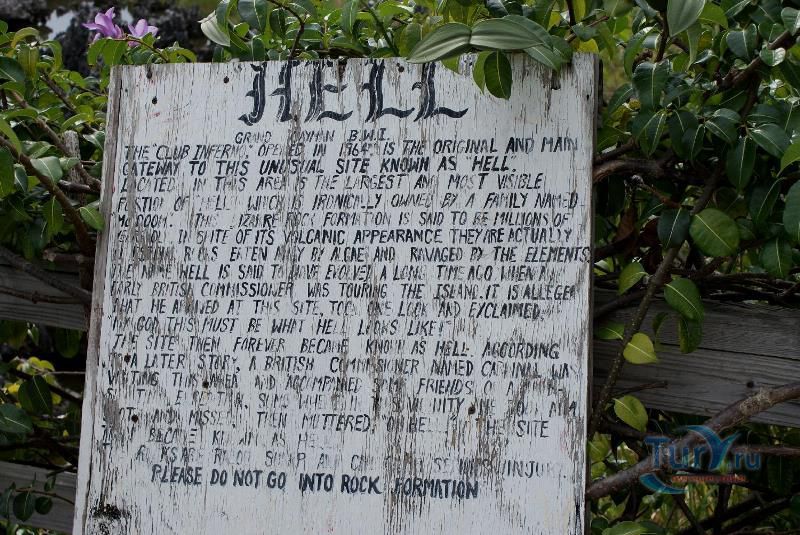 HELL
GRAND CAYMAN B.W.I.
THE "CLUB INFERNO" OPENED IN 1964, IS THE ORIGINAL AND MAIN
GATEWAY TO THIS UNUSUAL SITE KNOWN AS "HELL".
LOCATED IN THIS AREA IS THE LARGEST AND MOST VISIBLE
PORTION OF HELL WHICH IS IRONICALLY OWNED BY A FAMILY NAMED
THIS BIZARRE ROCK FORMATION IS SAID TO BE MILLIONS OF
IN SPITE OF ITS VOLCANIC APPEARANCE THEY ARE ACTUALLY
EATEN AWAY BY ALGAE AND RAVAGED BY THE ELEMENTS
THE NAME HELL IS SAID TO HAVE EVOLVED A LONG TIME AGO WHEN AN
EARLY BRITISH COMMISSIONER WAS TOURING THE ISLAND. IT IS ALLEGED
THAT HE ARRIVED AT THIS SITE, TOOK ONE LOOK AND EXCLAIMED
"MY GOD THIS MUST BE WHAT HELL LOOKS LIKE!"
THE SITE THEN FOREVER BECAME KNOWN AS HELL. ACCORDING
TO A LATER STORY, A BRITISH COMMISSIONER NAMED CARDINAL WAS
VISITING THIS AREA AND ACCOMPANIED SOME FRIENDS
HE TOOK AIM
AND MISSED, THEN MUTTERED, THE SITE
BECAME KNOWN AS
ROCKS ARE RAZOR SHARP AND
PLEASE DO NOT GO INTO ROCK FORMATION
Tury.ru